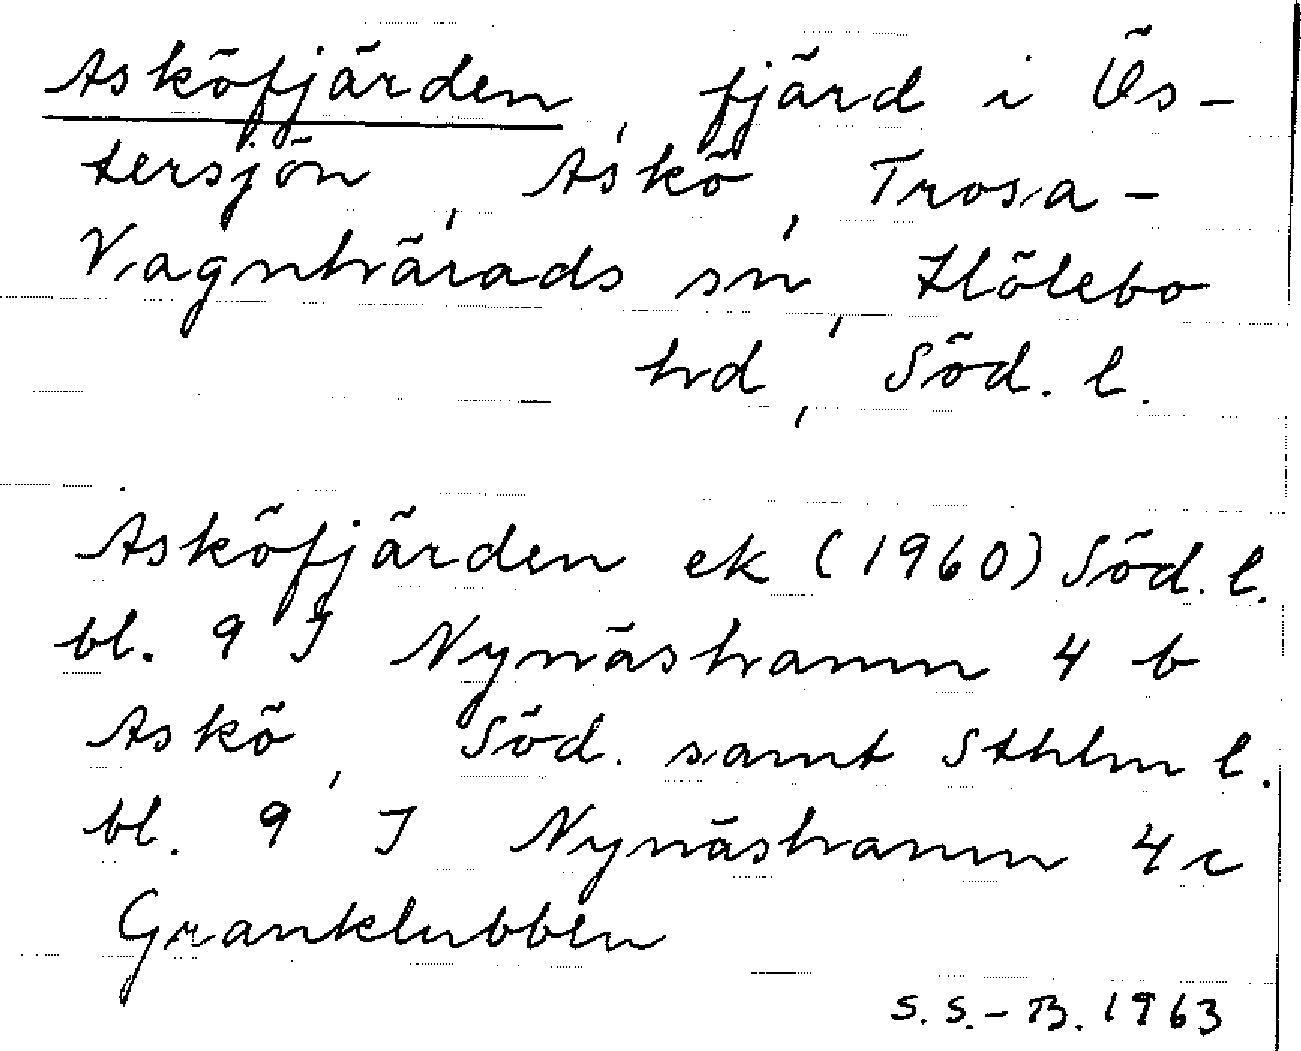 Asköfjärden, fjärd i Ös-
tersjön, Askö, Trosa-
Vagnhärads sn, Hölebo
hd, Söd. l.
Asköfjärden ek (1960) Söd. l.
bl. 9 I Nynäshamn 4 b
Askö, Söd. samt Sthlm l.
bl. 9 I Nynäshamn 4c
Granklubben
S. S.-B. 1963